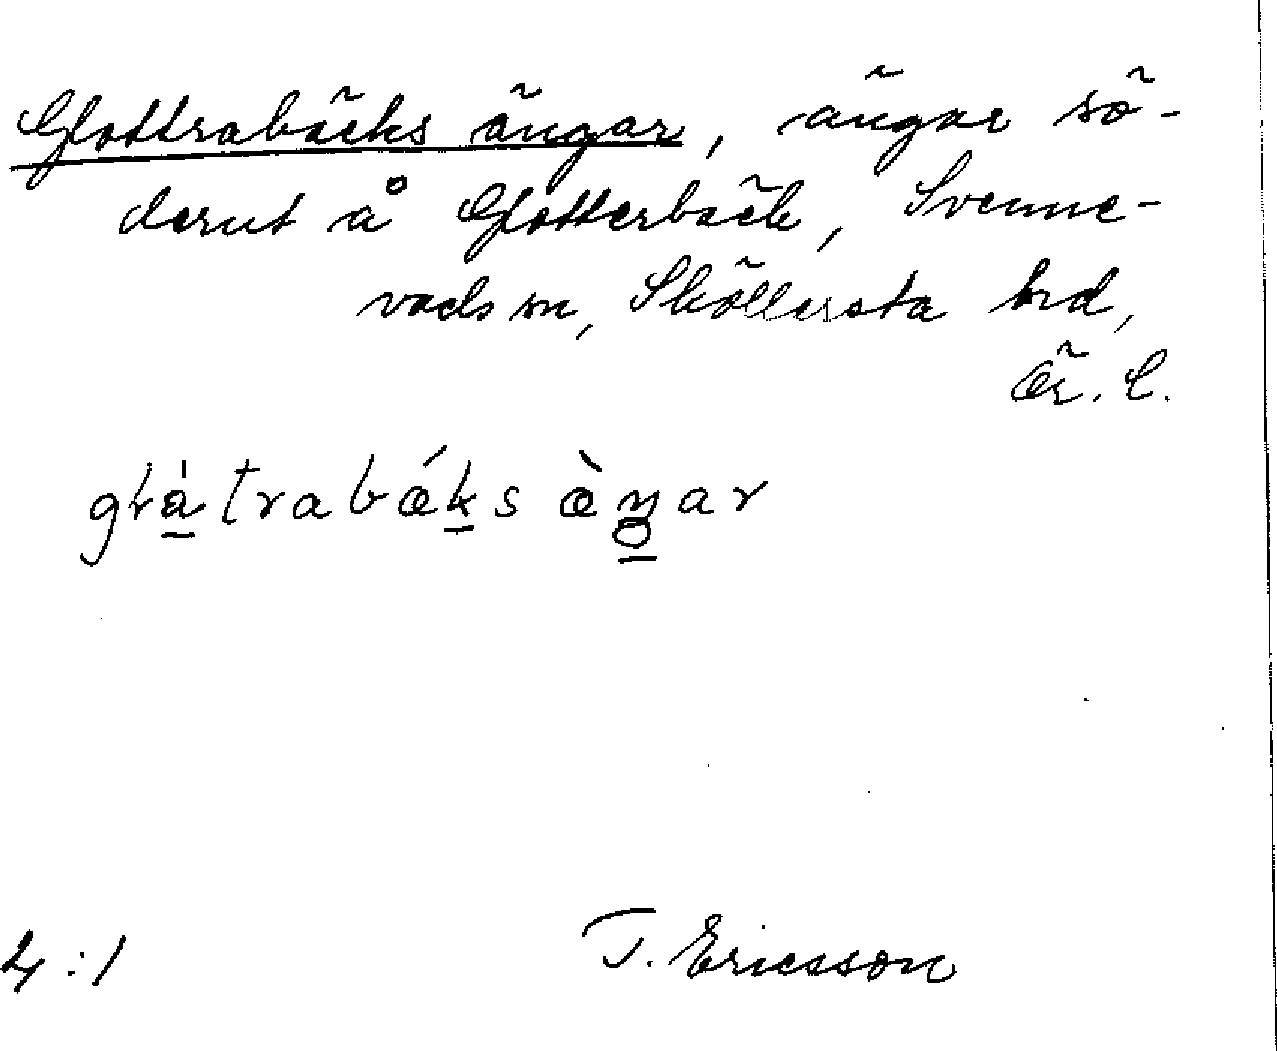 Glottrabäcks ängar, ängar sö-
derut å Glotterbäck, Svenne-
vads sn, Sköllersta hrd,
Ör. l.
glàtrabǽks æ̀ŋar
4:1
T. Ericsson